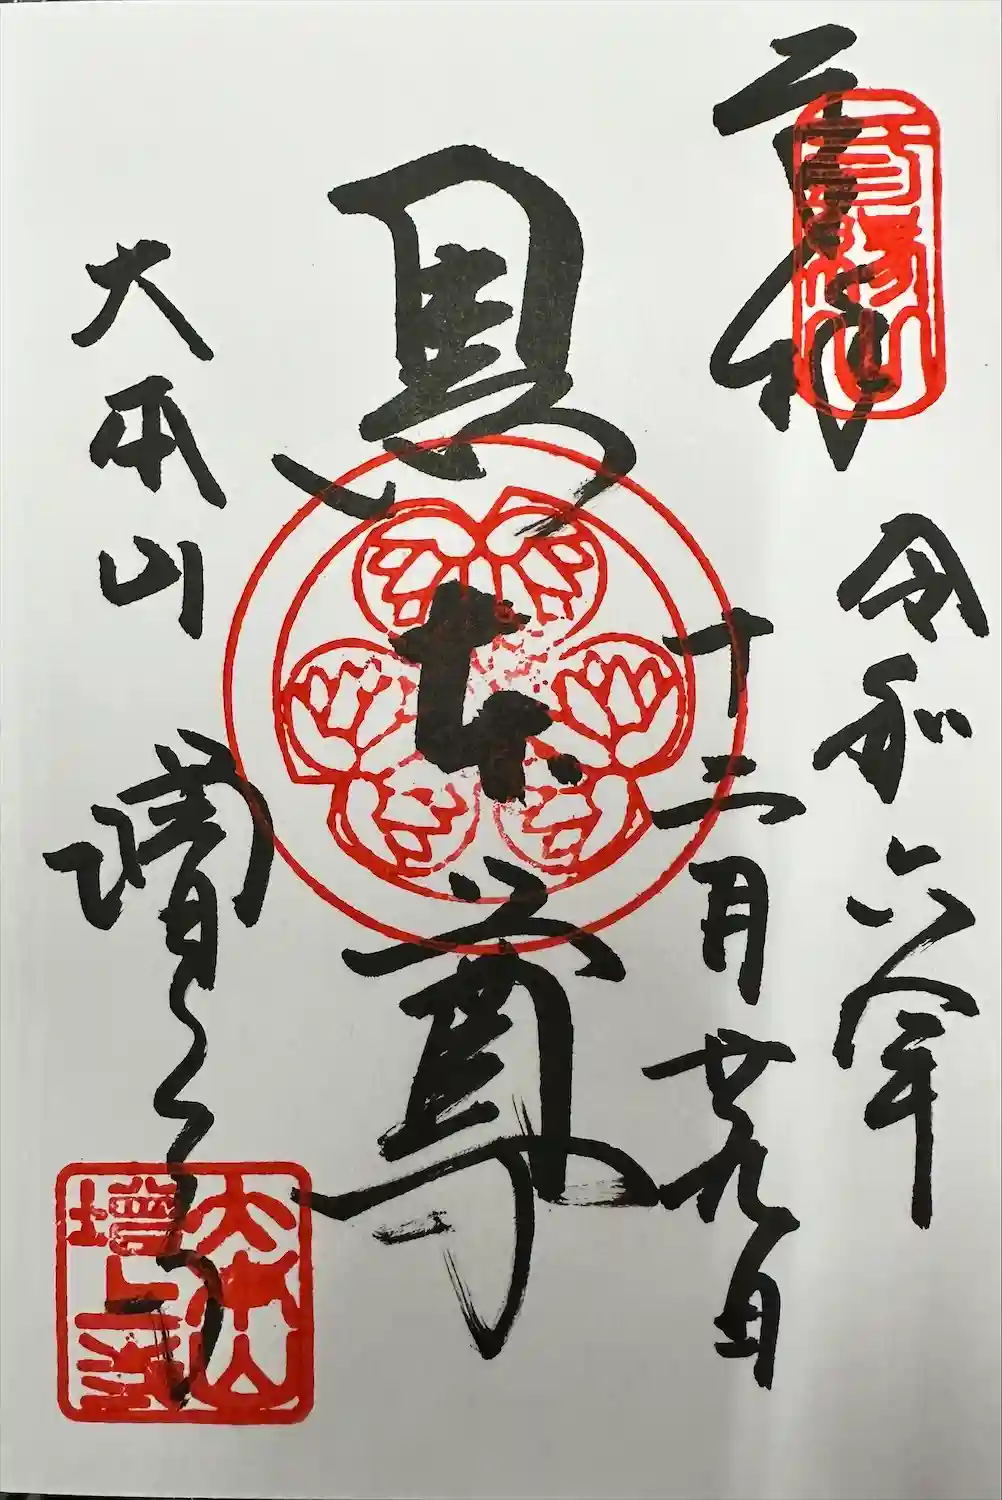 奉拝
令和六年
十二月廿九日
黒本尊
大本山 増上寺
大本山
増上寺